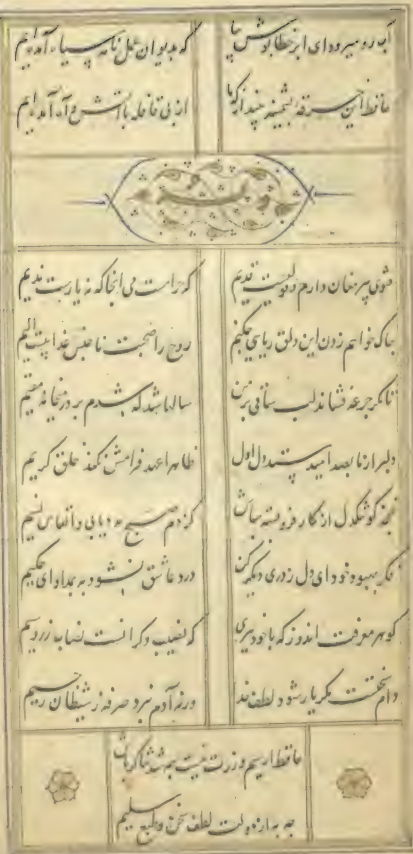 آب رو میرود ای ابر خطاپوش ببار
که بدیوان عمل نامه سیاه آمده‌ایم
حافظ این خرقه پشمینه بینداز که ما
از پی قافله با آتش و آه آمده‌ایم
وله
فتوی پیر مغان دارم و قولیست قدیم
که حرامست می آنجا که نه یارست ندیم
چاک خواهم زدن این دلق ریایی چکنم
روح را صحبت ناجنس عذابیست الیم
تا مگر جرعه فشاند لب ساقی بر من
سالها شد که شدم بر در میخانه مقیم
دلبر از ما بصد امید ستد اول دل
ظاهرا عهد فرامش نکند خلق کریم
غنچه گو تنگدل از کار فروبسته مباش
کز دم صبح مدد یابی و انفاس نسیم
فکر بهبود خود ای دل ز دری دیگر کن
درد عاشق نشود به بمداوای حکیم
گوهر معرفت اندوز که با خود ببری
که نصیب دگرانست نصاب زر و سیم
دام سختست مگر یار شود لطف خدا
ورنه آدم نبرد صرفه ز شیطان رجیم
حافظ ار سیم و زرت نیست چه شد شاکر باش
چه به از دولت لطف سخن و طبع سلیم